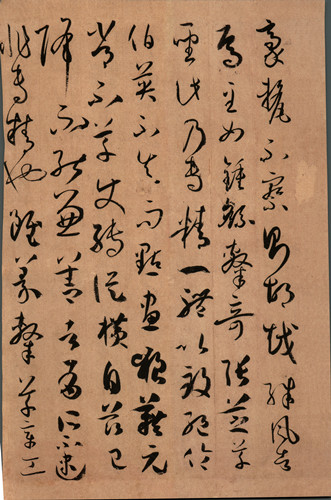 豪氂不察則胡越殊風者
焉至如鍾繇隸奇張芝草
聖此乃專精一體以致絕倫
伯英不真而點畫狼藉元
常不草使轉縱橫自茲已
降不能兼善者有所不逮
非專精也雖篆隸草章工